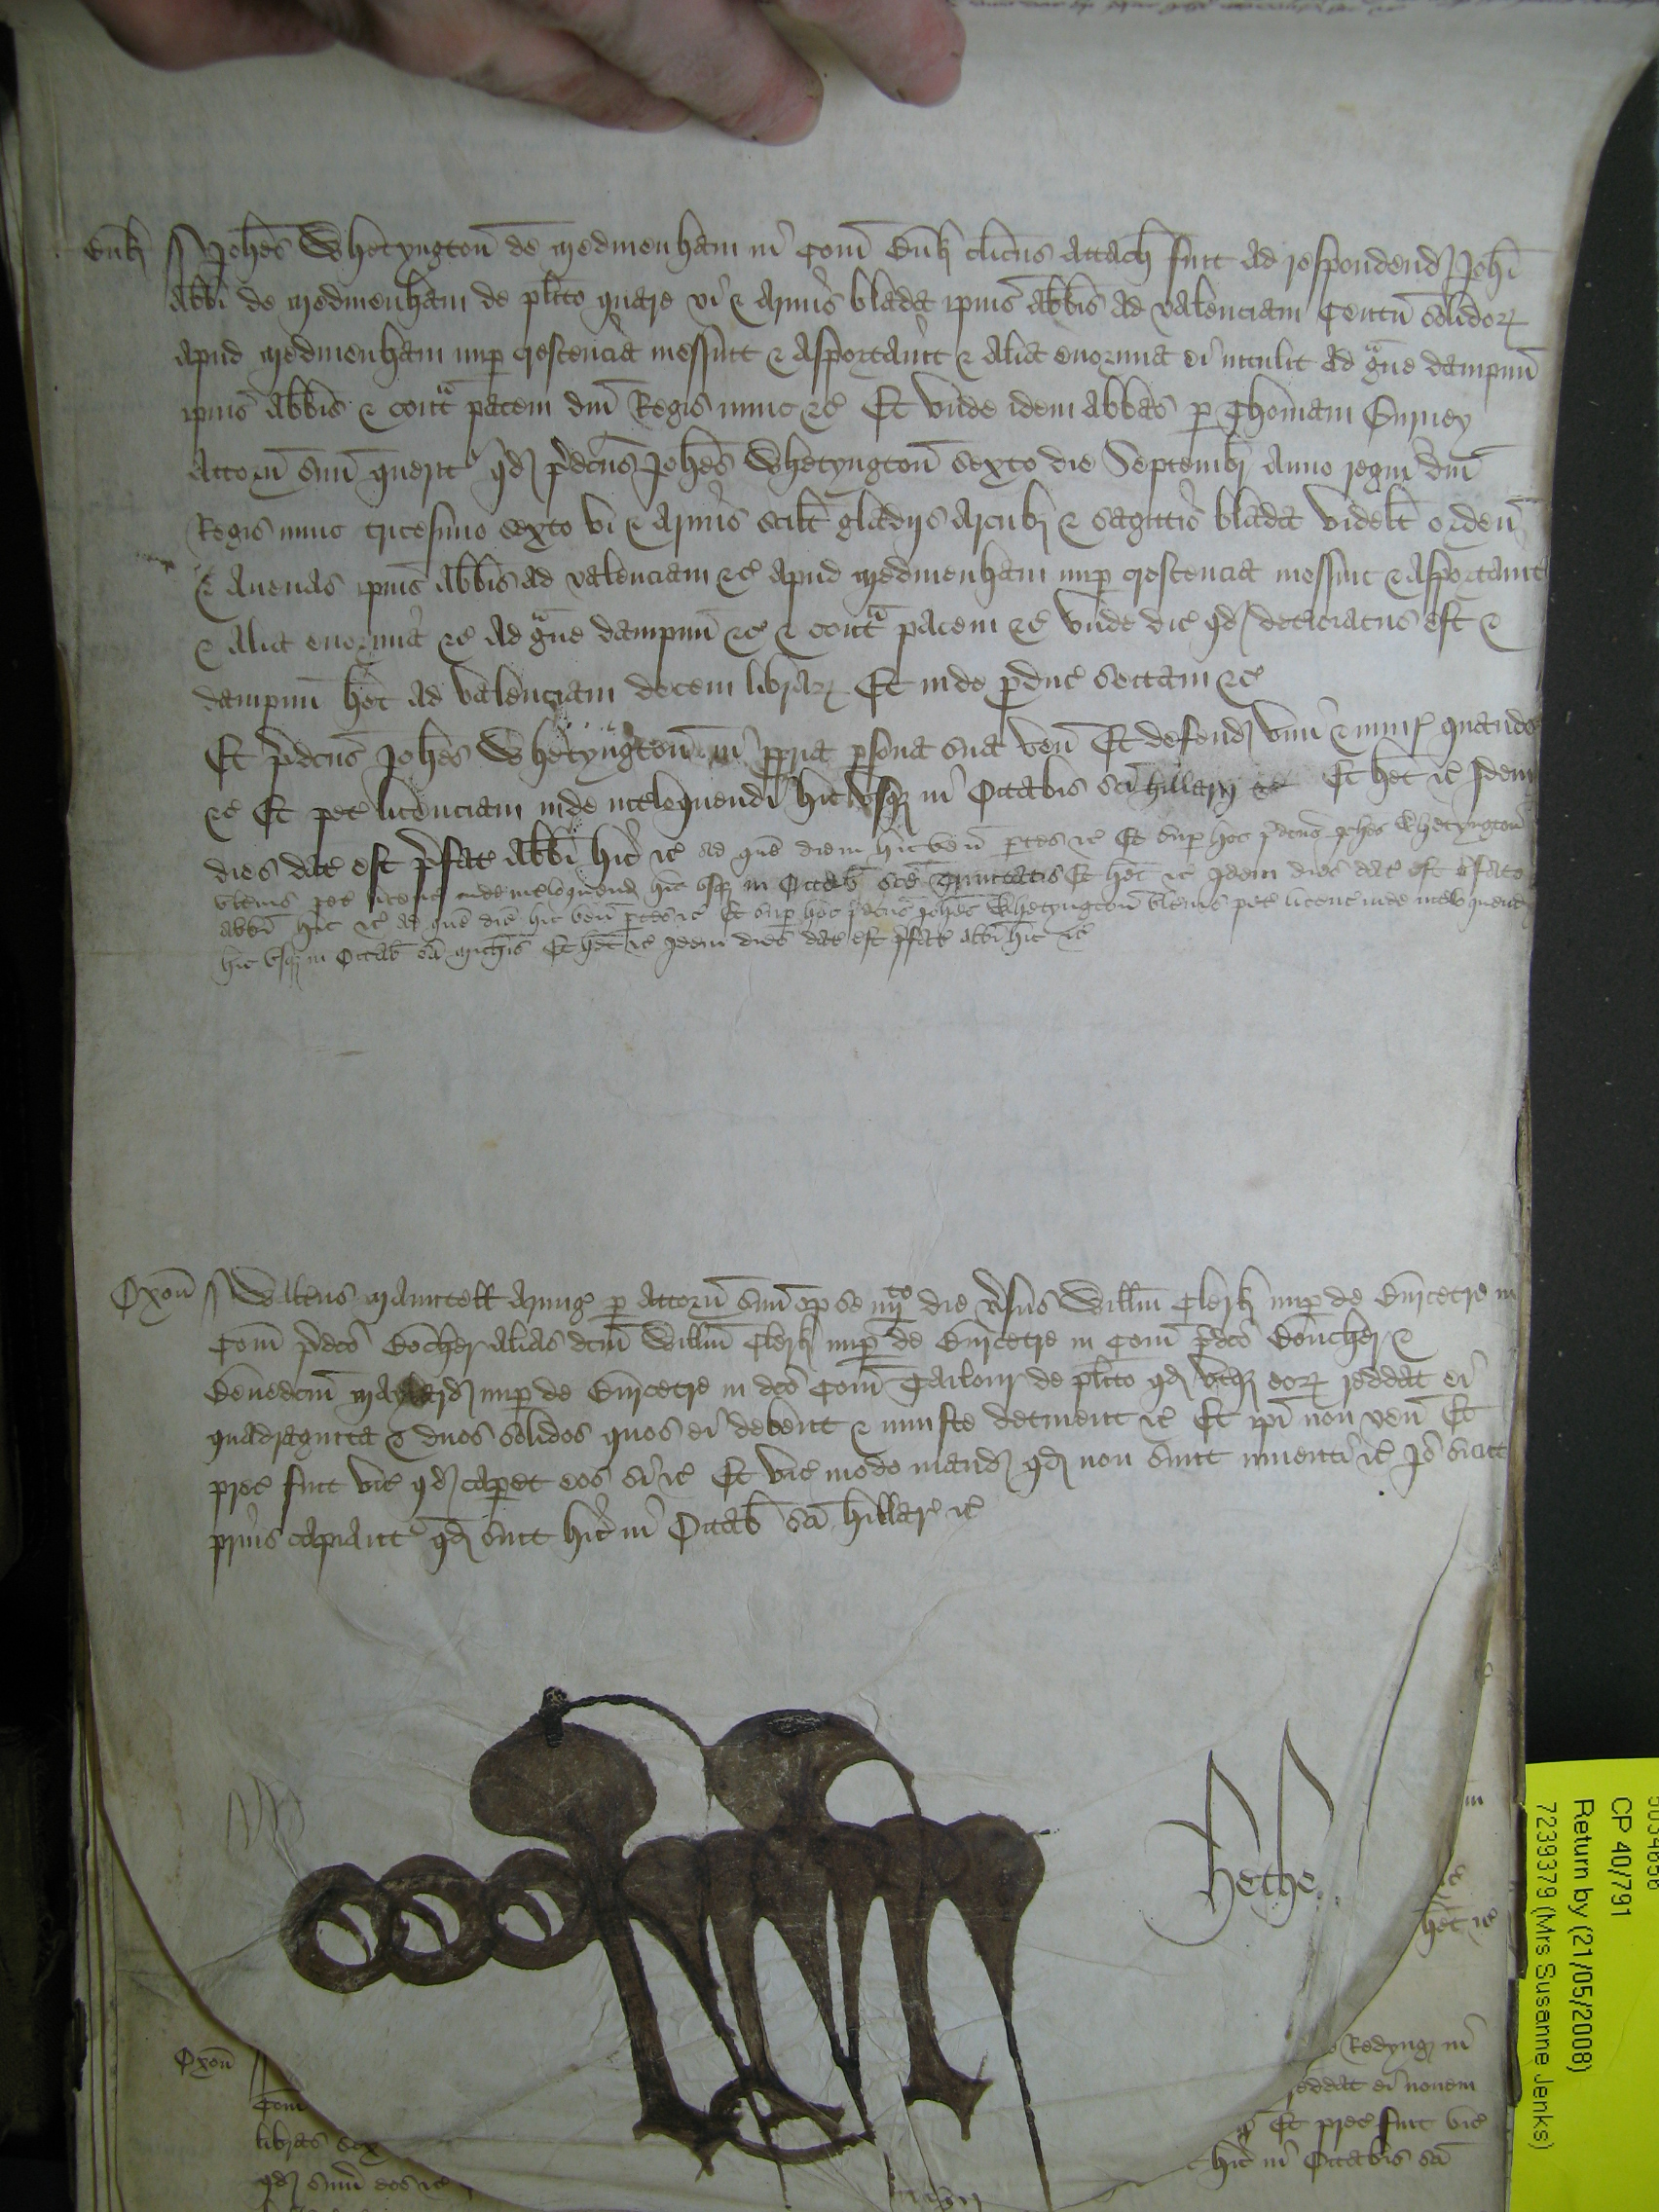 Buk Johes Whetyngton de Medmenham in Com Buk clicus attach fuit ad respondend Johi
Abbi de Medmenham de plito quare vi & armis blada ipius Abbis ad valenciam Centu solidor
apud Medmenham nup crescencia messuit & asportauit & alia enormia ei intulit ad gue dampnu
ipius Abbis & conta pacem dni Regis nunc &c Et unde idem Abbas p Thomam Gurney
Attorn suu querit qd pdcus Johes Whetyngton sexto die Septembr Anno regni dni
Regis nunc tricesimo sexto vi & armis scilt gladijs arcub & sagittis blada videlt ordeu
& Auenas ipius Abbis ad valenciam &c apud Medmenham nup crescencia messuit & asportauit
& alia enormia &c ad gue dampnu &c & conta pacem &c unde dic qd deterioratus est &
dampnu het ad valenciam decem librar Et inde pduc sectam &c
Et pdcus Johes Whetyngton in ppria psona sua ven Et defend vim & iniur quando
&c Et pet licenciam inde inteloquendi hic usq in Octabis sci Hillarij &c Et het &c Idem
dies dat est pfat Abbi hic &c ad que diem hic ven ptes &c Et sup hoc pdcus Johes Whetyngton
ulterius pet licenc inde inteloquend hic usq in Octab sce Trinitatis Et het &c Idem dies dat est pfato
abbi hic &c ad que die hic ven ptes &c Et sup hoc pdcus Johes Whetyngton ulterius pet licenc inde inteloquend
hic usq in Octab sci Michis Et het &c Idem dies dat est pfat abbi hic &c
Oxon Walterus Mauntell Armig p Attorn suu op se iiijto die vsus Willm Clerk nup de Burcetre in
Com pdco Bocher alias dcm Willm Clerk nup de Burcetre in Com pdco Boucher &
Benedcm nup de Burcetre in dco Com Taylour de plito qd utq eor reddat ei
quadraginta & duos solidos quos ei debent & iniuste detinent &c Et ipi non ven Et
prec fuit vic qd caperet eos si &c Et vic modo mand qd non sunt inuenti &c Jo sicut
prius capiant qd sint hic in Octab sci Hillar &c
Hethe
het &c
Oxon
Redyng in
Com
reddat ei nouem
libras sex
Et prec fuit vic
qd sum eos &c
hic in Octabis sci
CP 40/791
Return by (21/05/2008)
7239379 (Mrs Susanne Jenks)